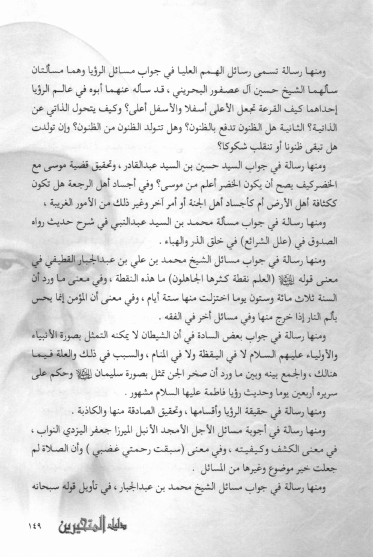 ومنها رسالة تسمى رسائل الهمم العليا في جواب مسائل الرؤيا وهما مسألتان
سألهما الشيخ حسين آل عصفور البحريني ، قد سأله عنهما أبوه في عالم الرؤيا
إحداهما كيف القرعة تجعل الأعلى أسفلا والأسفل أعلى؟ وكيف يتحول الذاتي عن
الذاتية؟ الثانية هل الظنون تدفع بالظنون؟ وهل تتولد الظنون من الظنون؟ وإن تولدت
هل تبقى ظنونا أو تنقلب شكوكا؟
ومنها رسالة في جواب السيد حسين بن السيد عبدالقادر ، وتحقيق قضية موسى مع
الخضر كيف يصح أن يكون الخضر أعلم من موسى؟ وفي أجساد أهل الرجعة هل تكون
ككثافة أهل الأرض أم كأجساد أهل الجنة أو أمر آخر وغير ذلك من الأمور الغريبة ،
ومنها رسالة في جواب مسألة محمد بن السيد عبدالنبي في شرح حديث رواه
الصدوق في (علل الشرائع) في خلق الذر والهباء .
ومنها رسالة في جواب مسائل الشيخ محمد بن علي بن عبدالجبار القطيفي في
معنى قوله ﷺ (العلم نقطة كثرها الجاهلون) ما هذه النقطة ، وفي معنى ما ورد أن
السنة ثلاث مائة وستون يوما اختزلت منها ستة أيام ، وفي معنى أن المؤمن إنما يحس
بألم النار إذا خرج منها وفي مسائل أخر في الفقه .
ومنها رسالة في جواب بعض السادة في أن الشيطان لا يمكنه التمثل بصورة الأنبياء
والأولياء عليهم السلام لا في اليقظة ولا في المنام ، والسبب في ذلك والعلة فيما
هنالك ، والجمع بينه وبين ما ورد أن صخر الجن تمثل بصورة سليمان وحكم على
سريره أربعين يوما وحديث رؤيا فاطمة عليها السلام مشهور .
ومنها رسالة في حقيقة الرؤيا وأقسامها ، وتحقيق الصادقة منها والكاذبة .
ومنها رسالة في أجوبة مسائل الأجل الأمجد الأنبل الميرزا جعفر اليزدي النواب ،
في معنى الكشف وكيفيته ، وفي معنى (سبقت رحمتي غضبي ) وأن الصلاة لم
جعلت خير موضوع وغيرها من المسائل .
ومنها رسالة في جواب مسائل الشيخ محمد بن عبدالجبار ، في تأويل قوله سبحانه
دليل المتحيرين ١٤٩